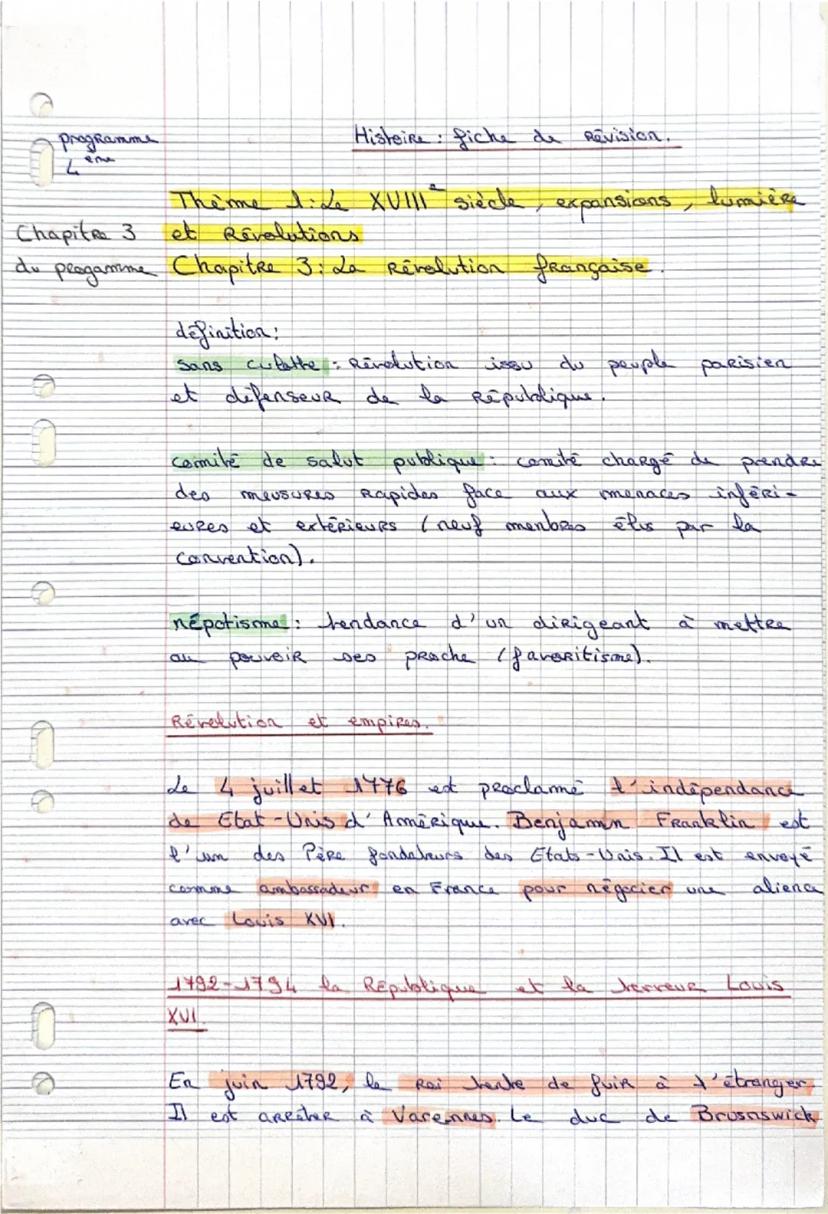 Histoire : fiche de révision.
programme
4ème
Thème 1: Le XVIIIe siècle, expansions, lumière
et Révolutions
Chapitre 3
du progamme
Chapitre 3: La Révolution française.
définition:
sans culotte : Révolution issu du peuple parisien
et défenseur de la République.
comité de salut publique : comité chargé de prendre
des meusures rapides face aux menaces inféri-
eures et extérieurs (neuf menbres élus par la
convention).
népotisme : tendance d'un dirigeant à mettre
au pouvoir ses proche (favoritisme).
Révolution et empires.
Le 4 juillet 1776 est proclamé l'indépendance
de Etat-Unis d'Amérique. Benjamin Franklin est
l'un des Père fondateurs des Etats-Unis. Il est envoyé
comme ambassadeur en France pour négocier une alience
avec Louis XVI.
1792-1794 la République et la terreur Louis
XVI.
En juin 1792, le Roi tente de fuir à l'étranger
Il est arrêter à Varennes. Le duc de Brusnswick